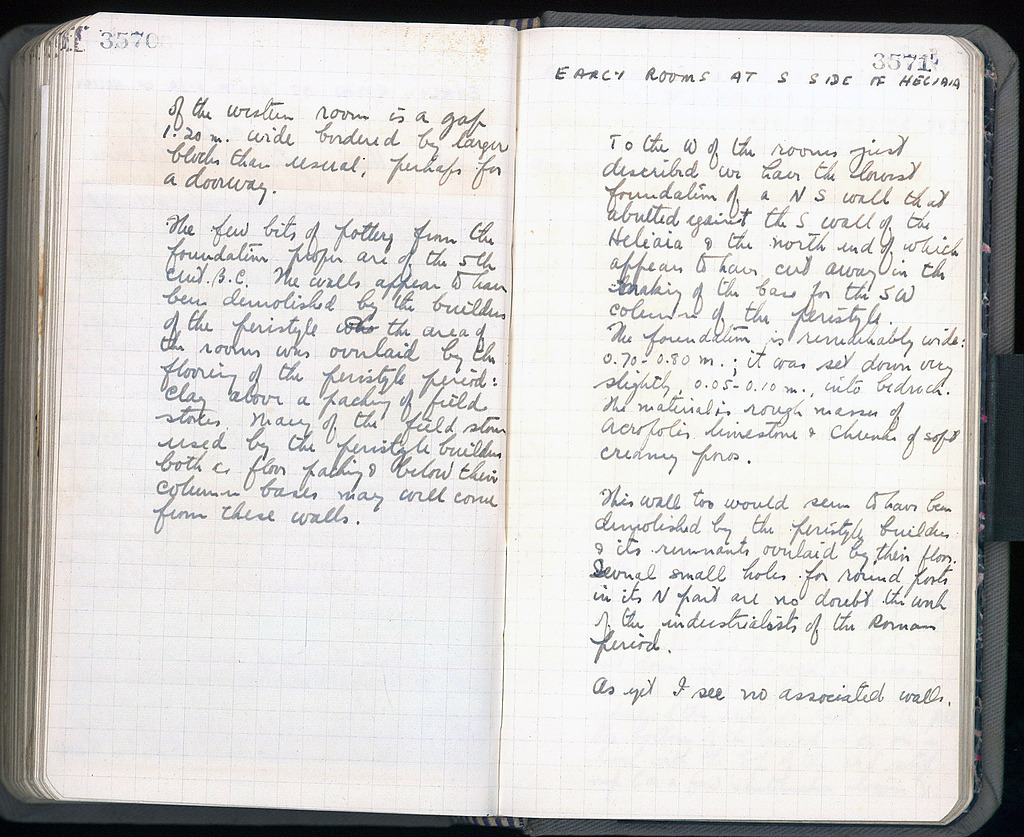 3570
of the western room is a gap
1.20 m. wide bordered by larger
blocks than usual; perhaps for
a doorway.
The few bits of pottery from the
foundation proper are of the 5th
cent. B.C. The walls appear to have
been demolished by the builders
of the peristyle the area of
the rooms was overlaid by the
flooring of the peristyle period:
clay above a packing of field
stones. Many of the field stones
used by the peristyle builders
both as floor packing & below their
column bases may well come
from these walls.
3571
EARLY ROOMS AT S SIDE OF HELIAIA
To the W of the rooms just
described we have the lowest
foundation of a N S wall that
abutted against the S wall of the
Heliaia & the north end of which
appears to have cut away in the
making of the base for the SW
column of the peristyle.
The foundation is remarkably wide:
0.70-0.80 m.; it was set down very
slightly, 0.05-0.10 m., into bedrock.
The material is rough masses of
Acropolis limestone & chunks of soft
creamy poros.
This wall too would seem to have been
demolished by the peristyle builders
& its remnants overlaid by their floor.
Several small holes for round posts
in its N part are no doubt the work
of the industrialists of the Roman
period.
As yet I see no associated walls.